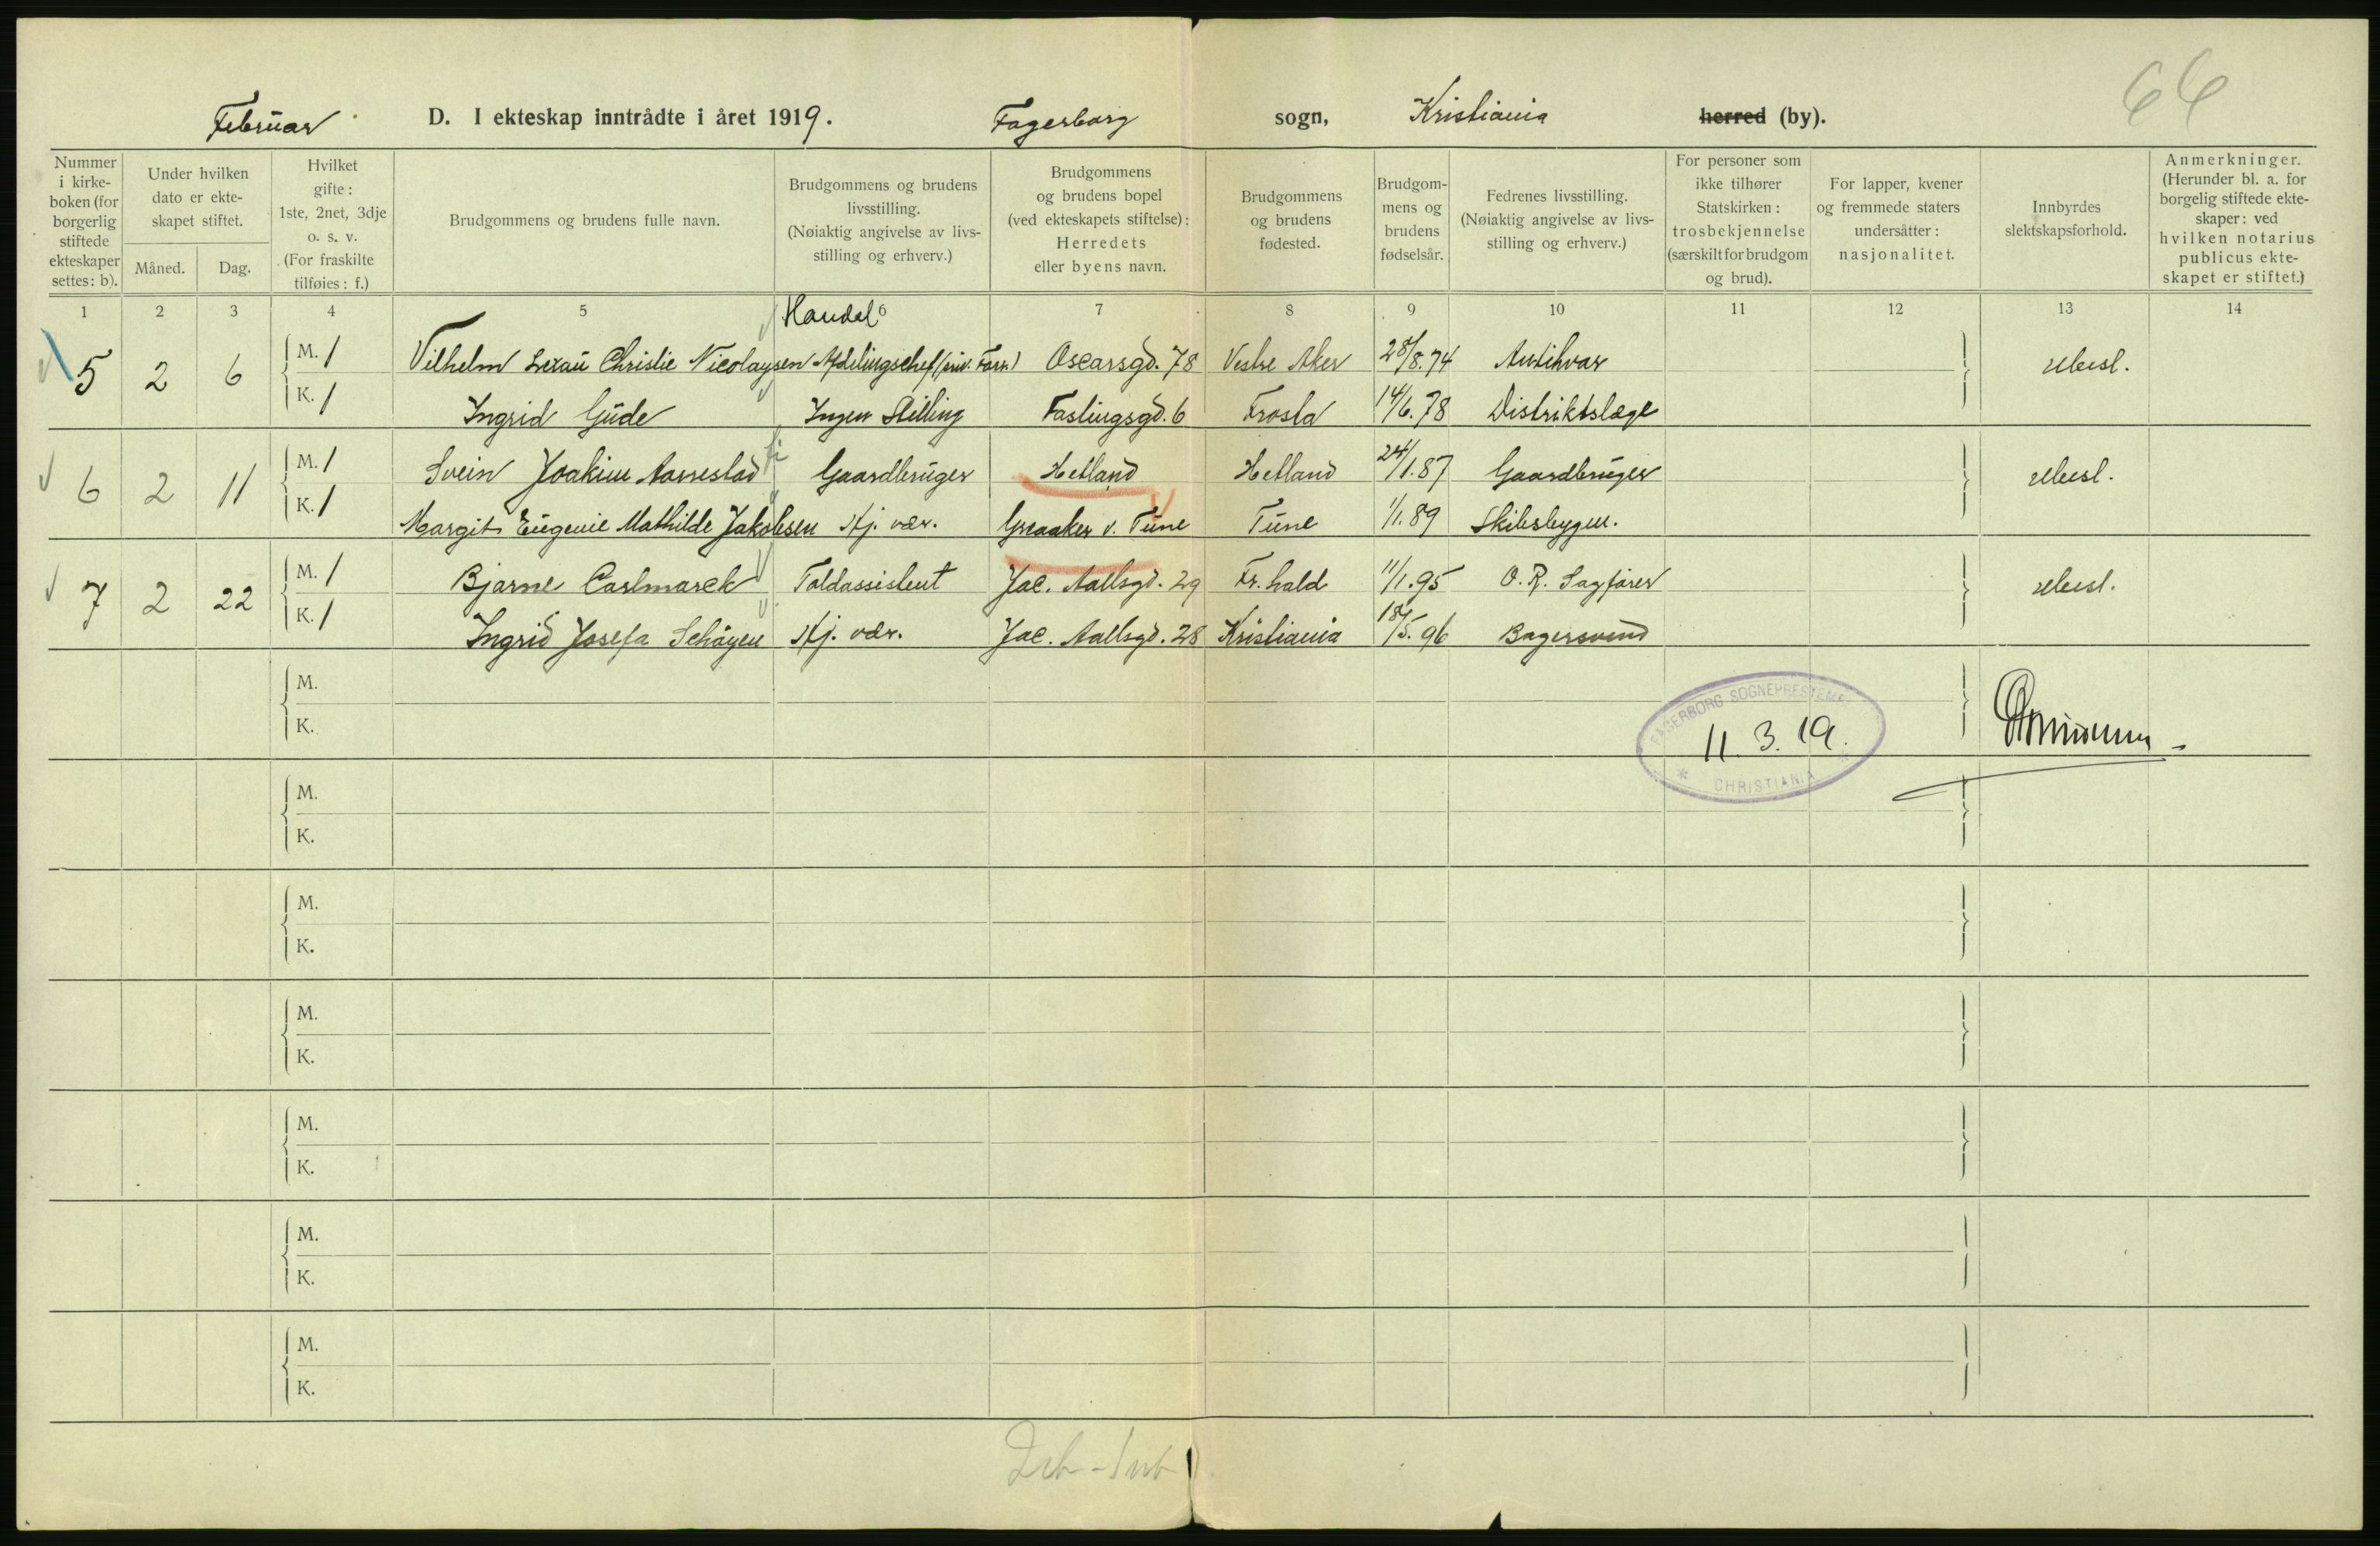 66
Februar D. I ekteskap inntrådte i året 1919. Fagerborg sogn, Kristiania herred (by).
Nummer i kirkeboken (for borgerlig stiftede ekteskaper settes: b).
Under hvilken dato er ekteskapet stiftet.
Måned. Dag.
Hvilket gifte: 1ste, 2net, 3dje o. s. v. (For fraskilte tilføies: f.)
Brudgommens og brudens fulle navn.
Brudgommens og brudens livsstilling. (Nøiaktig angivelse av livsstilling og erhverv.)
Brudgommens og brudens bopel (ved ekteskapets stiftelse): Herredets eller byens navn.
Brudgommens og brudens fødested.
Brudgommens og brudens fødselsår.
Fedrenes livsstilling. (Nøiaktig angivelse av livsstilling og erhverv.)
For personer som ikke tilhører Statskirken: trosbekjennelse (særskilt for brudgom og brud).
For lapper, kvener og fremmede staters undersåtter: nasjonalitet.
Innbyrdes slektskapsforhold.
Anmerkninger. (Herunder bl. a. for borgelig stiftede ekteskaper: ved hvilken notarius publicus ekteskapet er stiftet.)
1 2 3 4 5 6 7 8 9 10 11 12 13 14
Handel
5 2 6 M. 1 Vilhelm Lexau Christie Nicolaysen Afdelingschef (priv. Forr.) Oscarsgd. 78 Vestre Aker 28/8.74 Antikvar ubesl.
K. 1 Ingrid Gude Ingen Stilling Fastingsgd. 6 Frosta 14/6.78 Distriktslæge
6 2 11 M. 1 Svein Joakim Aarrestad Gaardbruger Hetland Hetland 24/1.87 Gaardbruger ubesl.
K. 1 Margit Eugenie Mathilde Jakobsen Hj. vær. Greaaker v. Tune Tune 1/1.89 Skibsbygm.
7 2 22 M. 1 Bjarne Carlmarck Toldassistent Jac. Aallsgd. 29 Fr.hald 11/1.95 O. R. Sagfører ubesl.
K. 1 Ingrid Josefa Schøyen Hj. vær. Jac. Aallsgd. 28 Kristiania 18/5.96 Bagersvend
M.
K.
FAGERBORG SOGNEPRESTEMB
11. 3. 19.
* CHRISTIANIA *
M.
K.
M.
K.
M.
K.
M.
K.
M.
K.
M.
K.